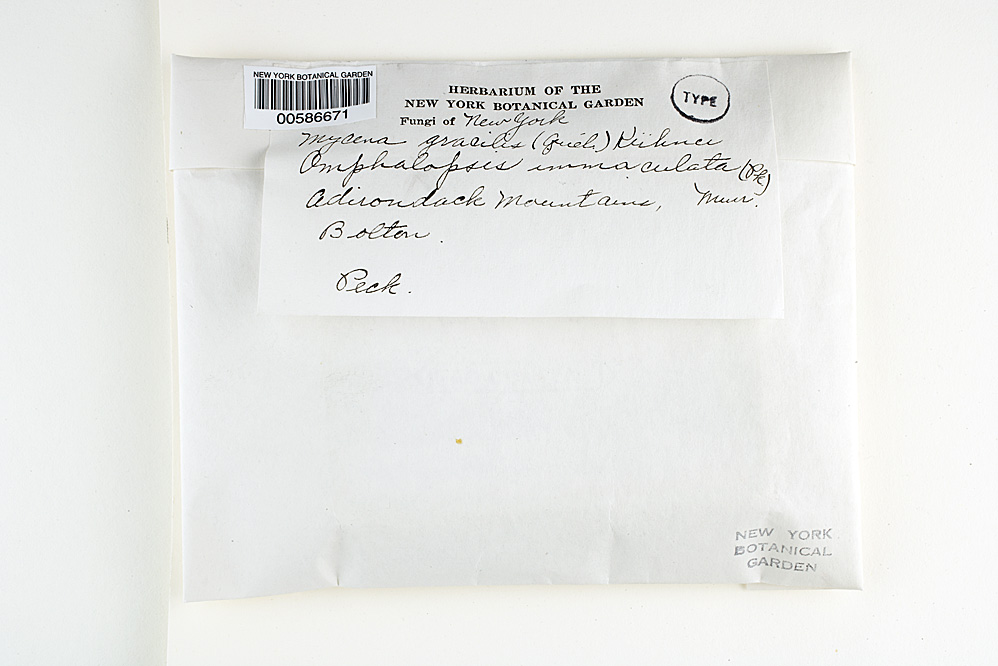 NEW YORK BOTANICAL GARDEN
00586671
HERBARIUM OF THE
NEW YORK BOTANICAL GARDEN
TYPE
Fungi of New York
Mycena gracilis (Quél.) Kühner
Omphalopsis immaculata (Pk)
Adirondack Mountains,
Bolton.
Peck.
NEW YORK
BOTANICAL
GARDEN